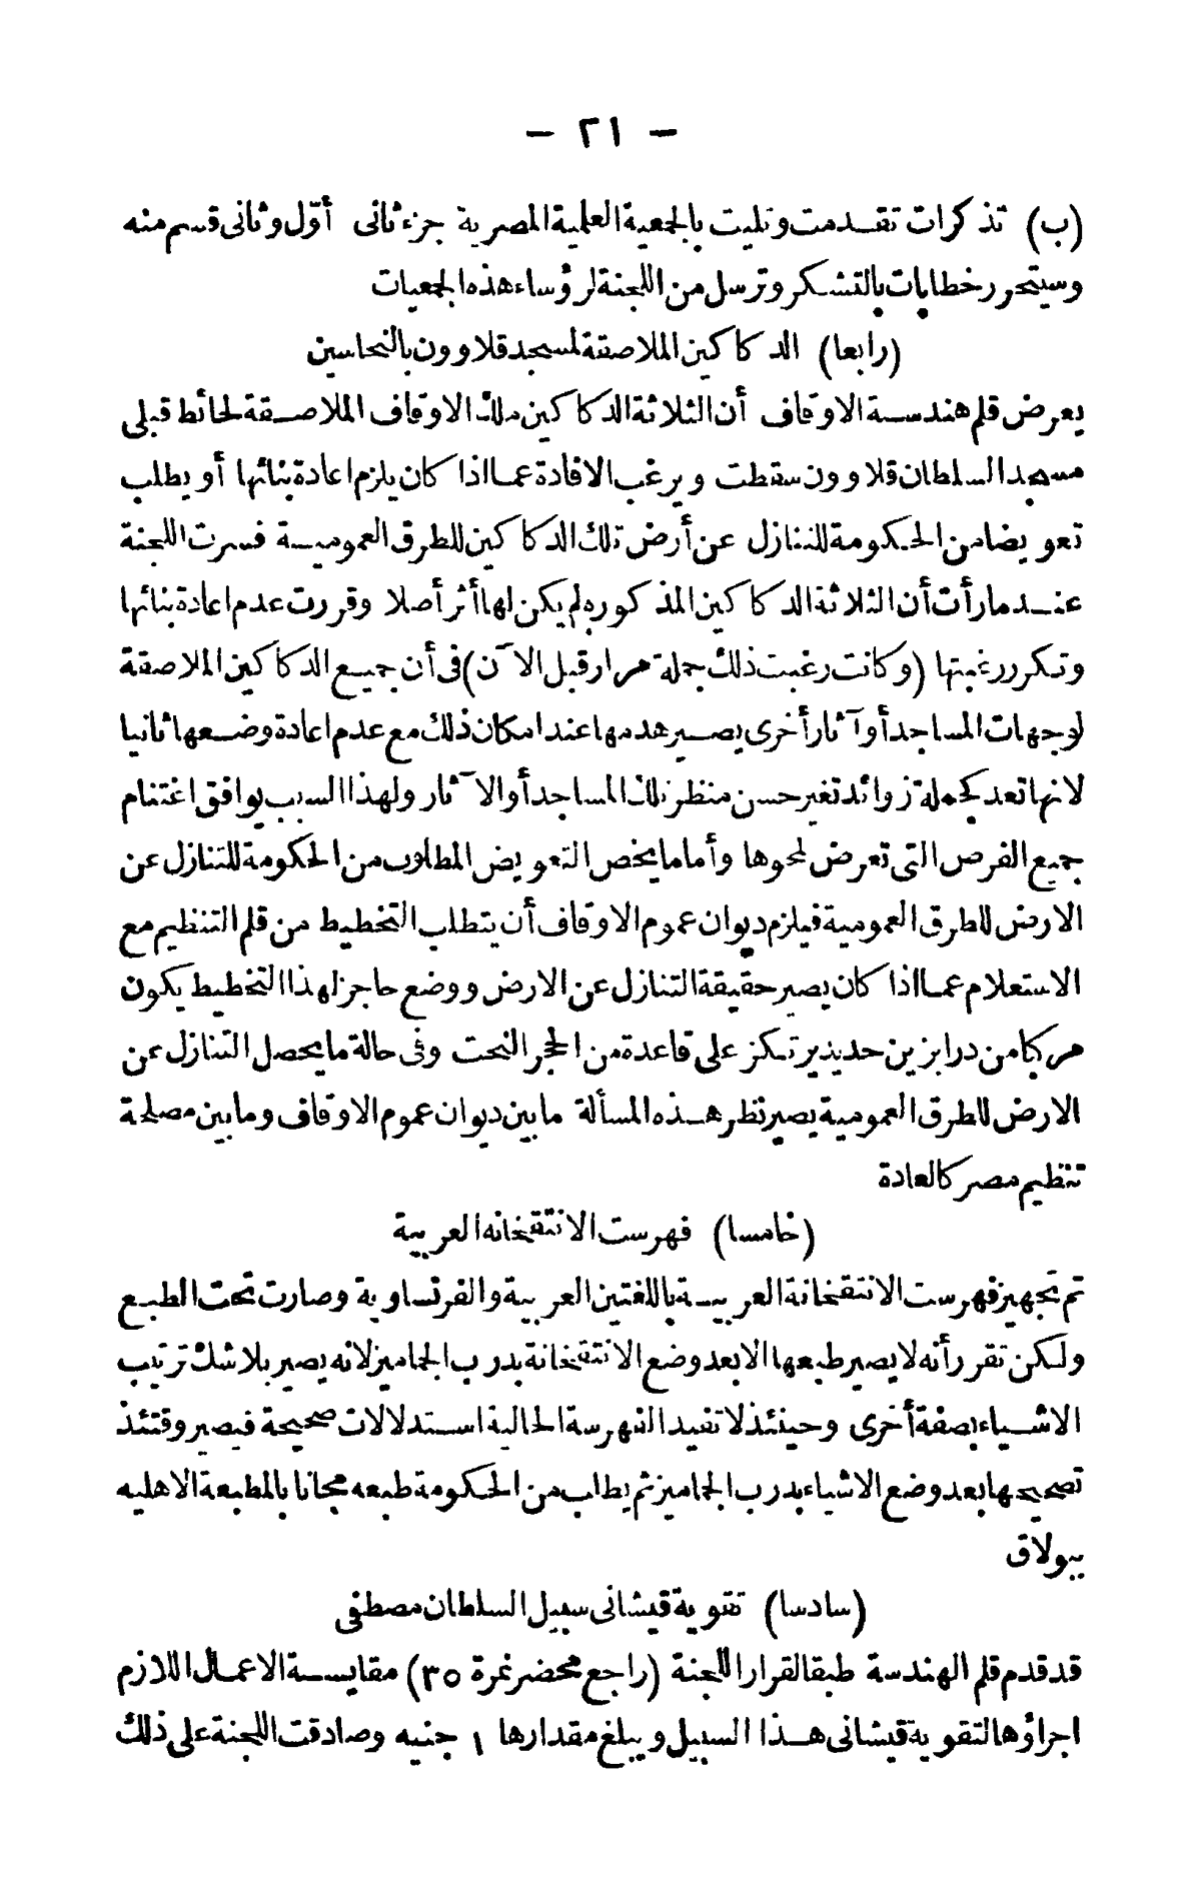 — ٢١ —
(ب) تذكرات تقدمت وتليت بالجمعية العلمية المصرية جزء ثانى أوّل وثانى قسم منه
وسيتحرر خطابات بالتشكر وترسل من اللجنة لرؤساء هذه الجمعيات
(رابعا) الدكاكين الملاصقة لمسجد قلاوون بالنحاسين
يعرض قلم هندسة الاوقاف أن الثلاثة الدكاكين ملك الاوقاف الملاصقة لحائط قبلى
مسجد السلطان قلاوون سقطت ويرغب الافادة عما اذا كان يلزم اعادة بنائها أو يطلب
تعويضا من الحكومة للتنازل عن أرض تلك الدكاكين للطرق العمومية فسرت اللجنة
عند ما رأت أن الثلاثة الدكاكين المذكوره لم يكن لها أثر أصلا وقررت عدم اعادة بنائها
وتكرر رغبتها (وكانت رغبت ذلك جملة مرار قبل الآن) فى أن جميع الدكاكين الملاصقة
لوجهات المساجد أو آثار أخرى يصير هدمها عند امكان ذلك مع عدم اعادة وضعها ثانيا
لانها تعد كجملة زوائد تغير حسن منظر تلك المساجد أو الآثار ولهذا السبب يوافق اغتنام
جميع الفرص التى تعرض لمحوها وأما ما يخص التعويض المطلوب من الحكومة للتنازل عن
الارض للطرق العمومية فيلزم ديوان عموم الاوقاف أن يتطلب التخطيط من قلم التنظيم مع
الاستعلام عما اذا كان يصير حقيقة التنازل عن الارض ووضع حاجز لهذا التخطيط يكون
مركبا من درابزين حديد يرتكز على قاعدة من الحجر النحت وفى حالة ما يحصل التنازل عن
الارض للطرق العمومية يصير نظر هذه المسألة ما بين ديوان عموم الاوقاف وما بين مصلحة
تنظيم مصر كالعادة
(خامسا) فهرست الانتقخانه العربية
تم تجهيز فهرست الانتقخانة العربية باللغتين العربية والفرنساوية وصارت تحت الطبع
ولكن تقرر أنه لا يصير طبعها الا بعد وضع الانتقخانة بدرب الجماميز لانه يصير بلا شك ترتيب
الاشياء بصفة أخرى وحينئذ لا تفيد الفهرسة الحالية استدلالات صحيحة فيصير وقتئذ
تصحيحها بعد وضع الاشياء بدرب الجماميز ثم يطلب من الحكومة طبعه مجانا بالمطبعة الاهليه
ببولاق
(سادسا) تقوية قيشانى سبيل السلطان مصطفى
قد قدم قلم الهندسة طبقا لقرار اللجنة (راجع محضر نمرة ٣٥) مقايسة الاعمال اللازم
اجراؤها لتقوية قيشانى هذا السبيل ويبلغ مقدارها ١ جنيه وصادقت اللجنة على ذلك